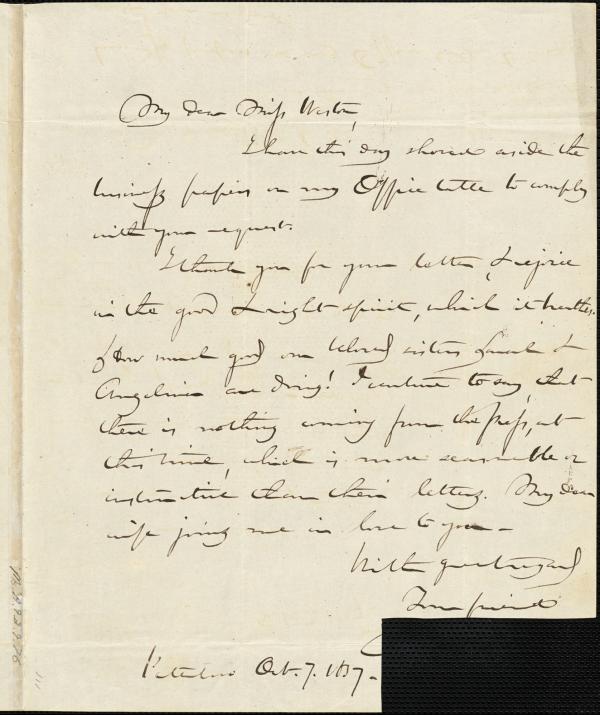 My dear Miss Weston,
I have this day shoved aside the
business papers on my Office table to comply
with your request.
I thank you for your letter, & rejoice
in the good & right spirit, which it breathes.
How much good our beloved sisters Sarah &
Angelina are doing! I venture to say, that
there is nothing coming from the press, at
this time, which is more seasonable or
instructive than their letters. My dear
wife joins me in love to you—
With great regard
Your friend
Peterboro Oct. 7. 1837—